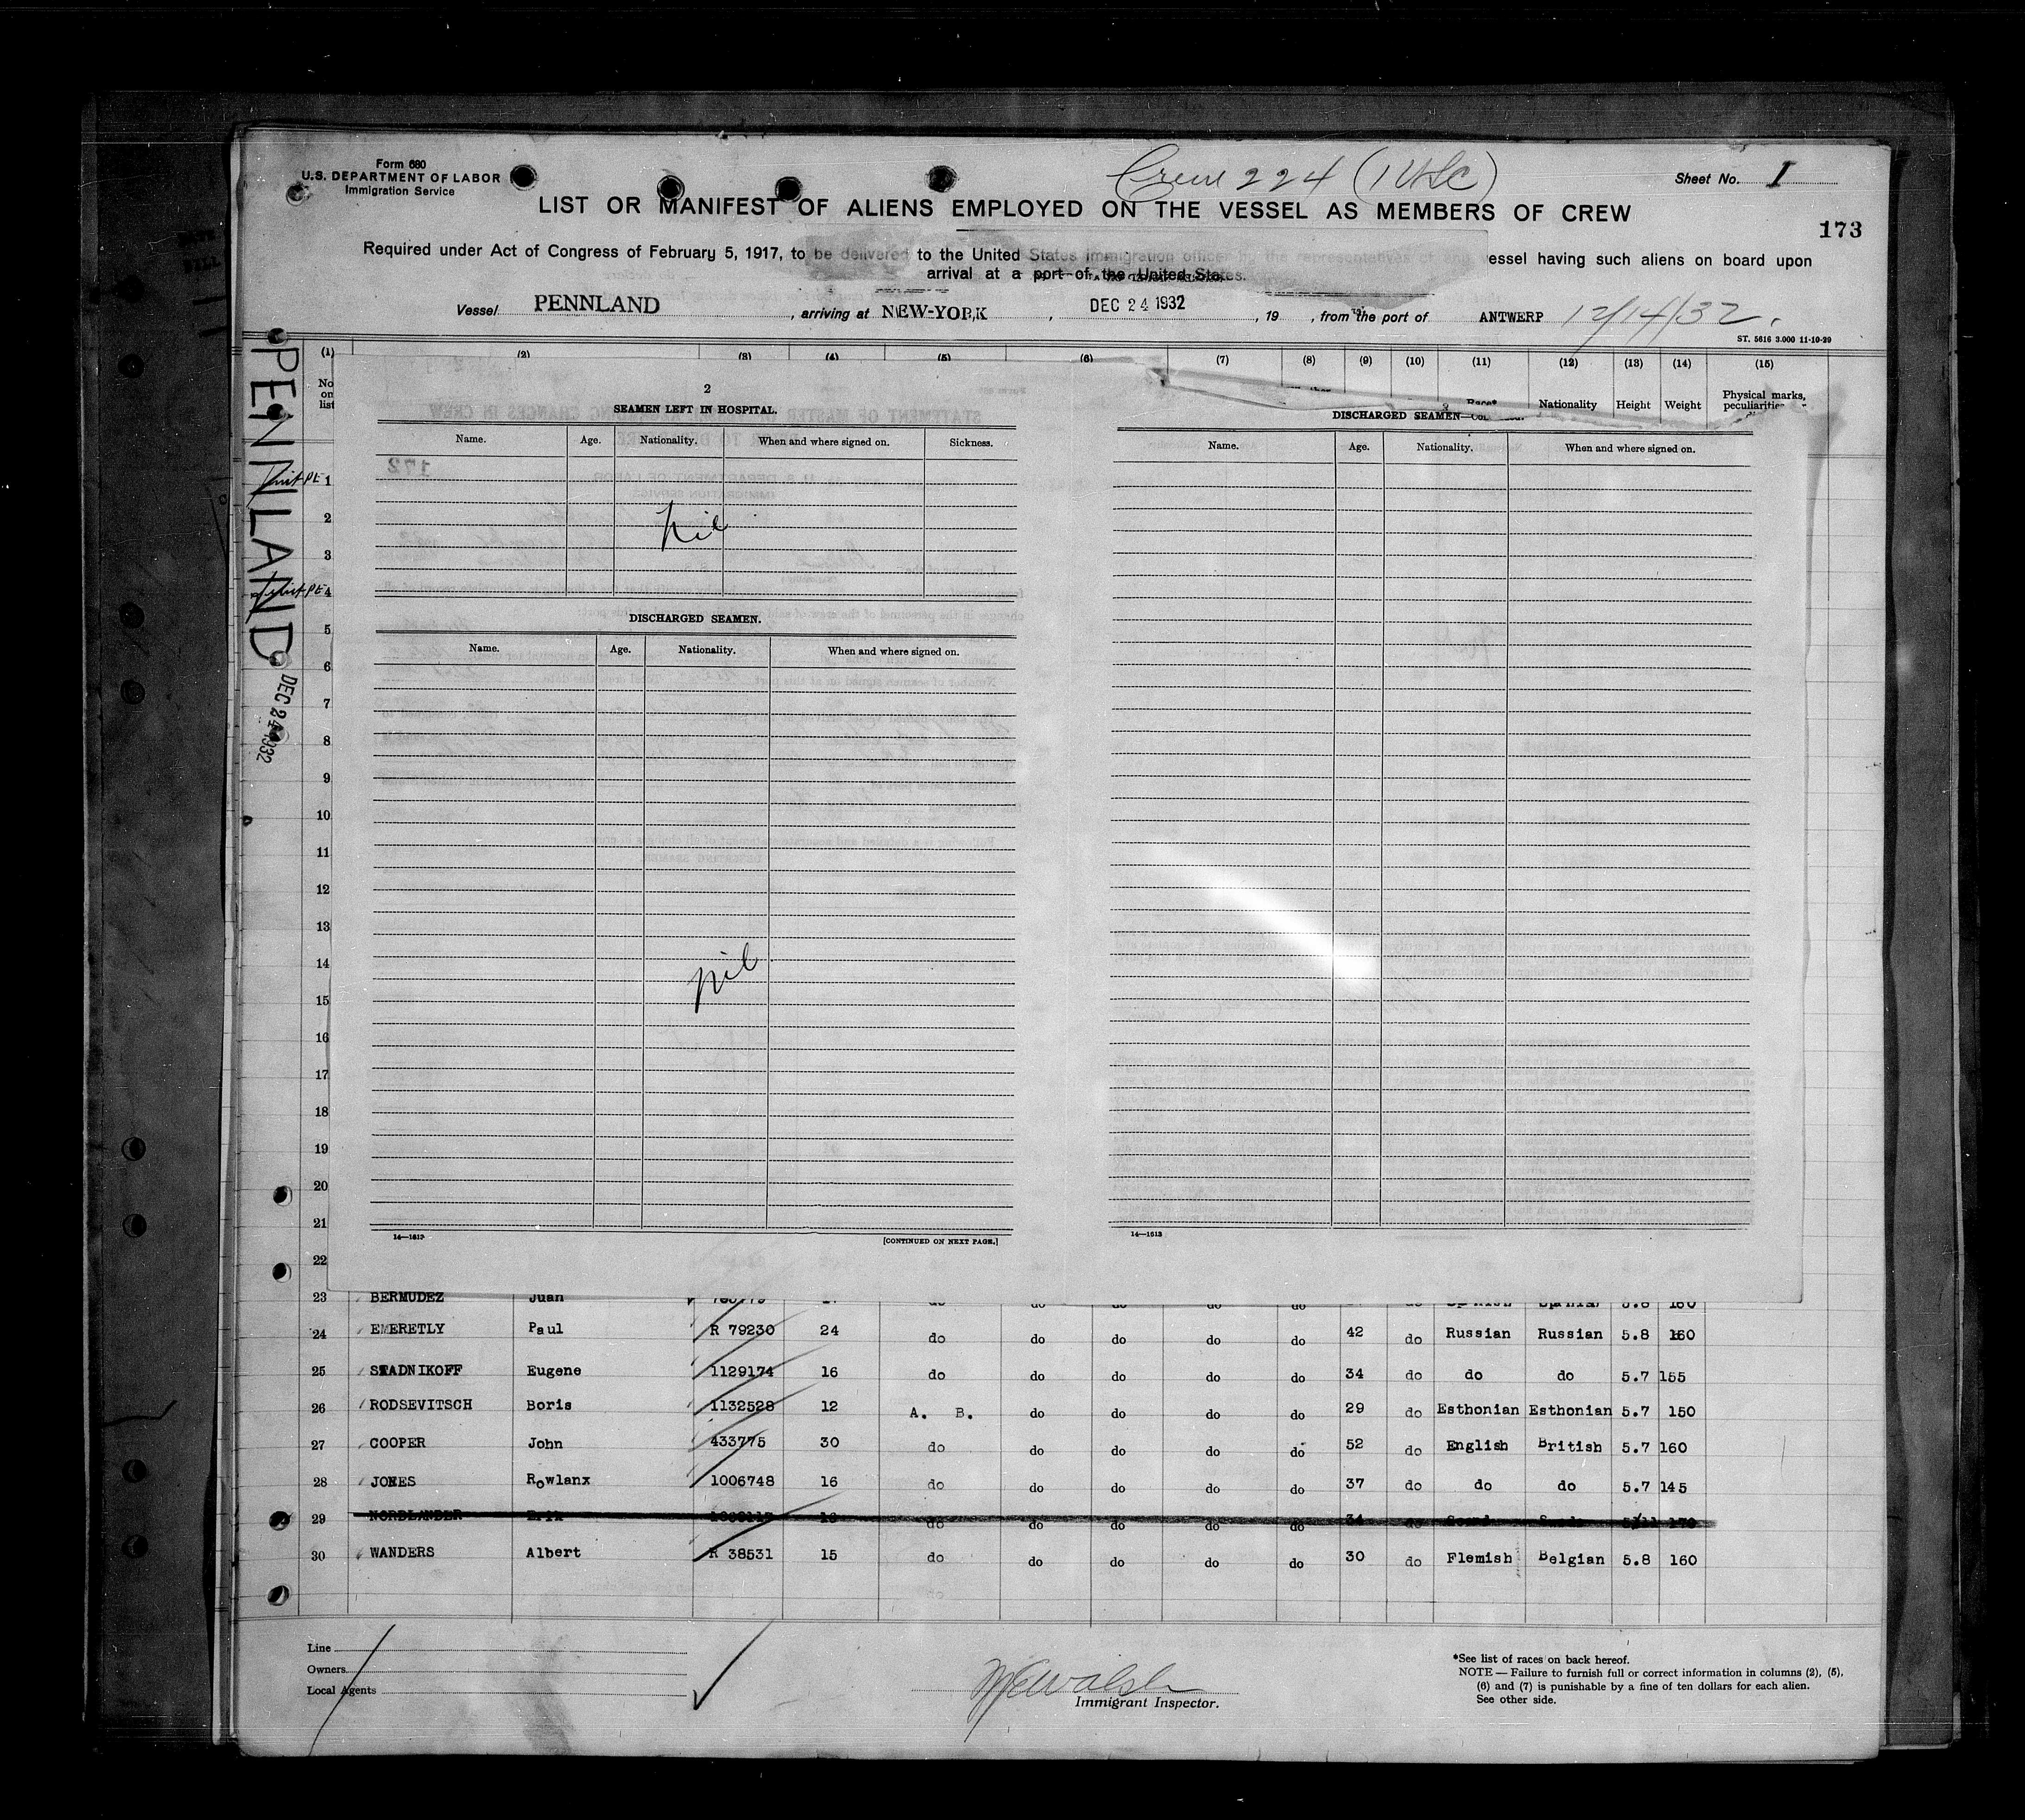 Form 680
U.S. DEPARTMENT OF LABOR
Immigration Service
Crew 224 (1 USC)
Sheet No. 1
LIST OR MANIFEST OF ALIENS EMPLOYED ON THE VESSEL AS MEMBERS OF CREW
173
Required under Act of Congress of February 5, 1917, to be delivered to the United States Immigration officer by the representatives of any vessel having such aliens on board upon
arrival at a port of the United States.
Vessel PENNLAND, arriving at NEW-YORK, DEC 24 1932, 19 , from the port of ANTWERP 12/14/32.
ST. 5616 3.000 11-10-29
PENNLAND DEC 24 1932
(1) (2) (3) (4) (5) (6) (7) (8) (9) (10) (11) (12) (13) (14) (15)
No on list
Race* Nationality Height Weight Physical marks, peculiarities
2
SEAMEN LEFT IN HOSPITAL.
Name. Age. Nationality. When and where signed on. Sickness.
nil
DISCHARGED SEAMEN.
Name. Age. Nationality. When and where signed on.
nil
14—1613 [CONTINUED ON NEXT PAGE.]
3
DISCHARGED SEAMEN—
Name. Age. Nationality. When and where signed on.
14—1613
1
2
3
4
5
6
7
8
9
10
11
12
13
14
15
16
17
18
19
20
21
22
23 BERMUDEZ Juan do do do do do do Spanish Spanish 5.6 160
24 EMERETLY Paul R 79230 24 do do do do do 42 do Russian Russian 5.8 160
25 STADNIKOFF Eugene 1129174 16 do do do do do 34 do do do 5.7 155
26 RODSEVITSCH Boris 1132528 12 A. B. do do do do 29 do Esthonian Esthonian 5.7 150
27 COOPER John 433775 30 do do do do do 52 do English British 5.7 160
28 JONES Rowlanx 1006748 16 do do do do do 37 do do do 5.7 145
29 NORDLANDER Erik 16 do do do do do 34 do 170
30 WANDERS Albert R 38531 15 do do do do do 30 do Flemish Belgian 5.8 160
Line
Owners
Local Agents
Walsh
Immigrant Inspector.
*See list of races on back hereof.
NOTE — Failure to furnish full or correct information in columns (2), (5),
(6) and (7) is punishable by a fine of ten dollars for each alien.
See other side.